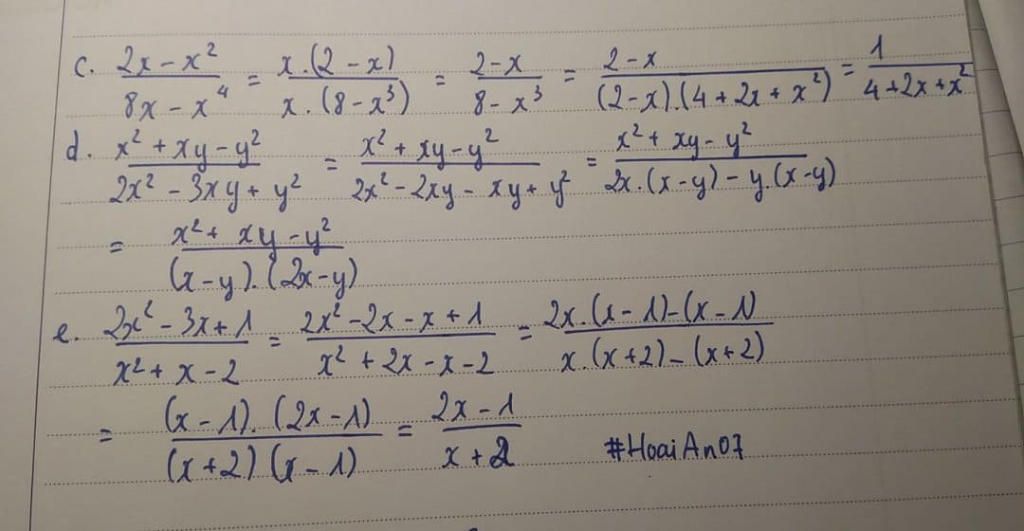 c. (2x - x²)/(8x - x⁴) = (x.(2 - x))/(x.(8 - x³)) = (2 - x)/(8 - x³) = (2 - x)/((2 - x).(4 + 2x + x²)) = 1/(4 + 2x + x²)
d. (x² + xy - y²)/(2x² - 3xy + y²) = (x² + xy - y²)/(2x² - 2xy - xy + y²) = (x² + xy - y²)/(2x.(x - y) - y.(x - y))
= (x² + xy - y²)/((x - y).(2x - y))
e. (2x² - 3x + 1)/(x² + x - 2) = (2x² - 2x - x + 1)/(x² + 2x - x - 2) = (2x.(x - 1) - (x - 1))/(x.(x + 2) - (x + 2))
= ((x - 1).(2x - 1))/((x + 2)(x - 1)) = (2x - 1)/(x + 2) #HoaiAn07